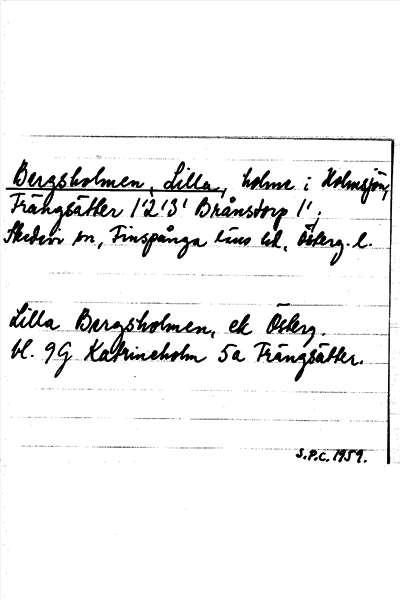 Bergsholmen, Lilla, holme i Holmsjön,
Trängsätter 1'2'3' Brånstorp 1';
Skedevi sn, Finspånga läns hd, Österg. l.
Lilla Bergsholmen, ek Österg.
bl. 9G Katrineholm 5a Trängsätter.
S.P.C. 1959.